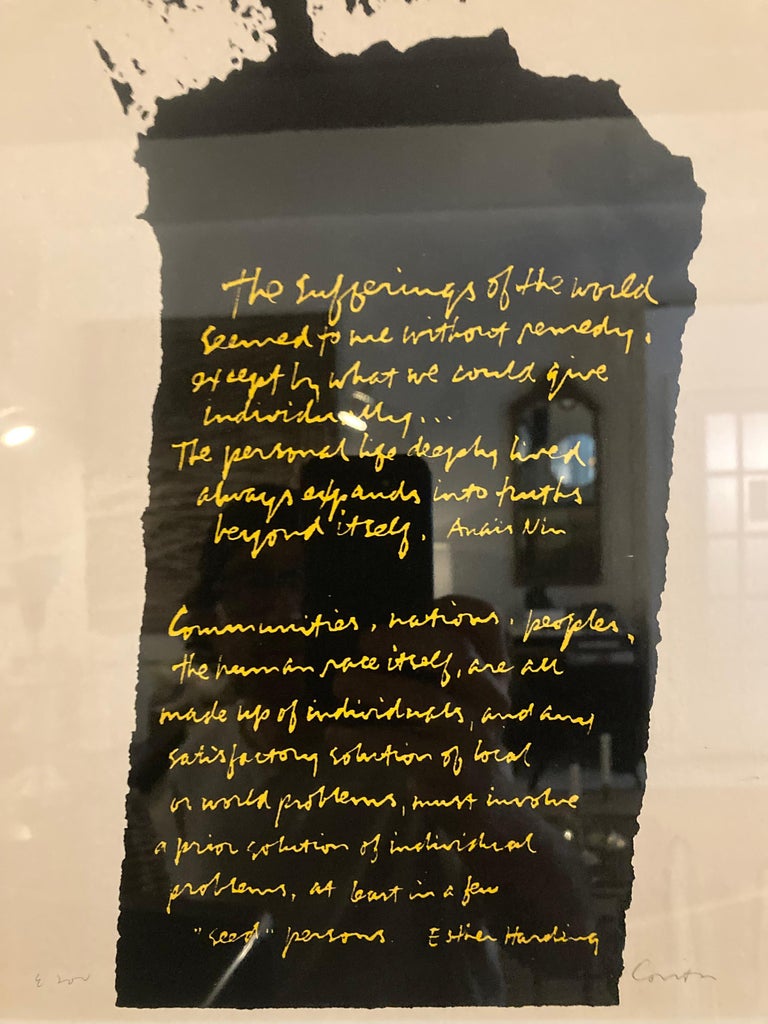 the sufferings of the world
seemed to me without remedy,
except by what we could give
individually...
The personal life deeply lived,
always expands into truths
beyond itself. Anais Nin
Communities, nations, peoples,
the human race itself, are all
made up of individuals, and any
satisfactory solution of local
or world problems, must involve
a prior solution of individual
problems, at least in a few
"seed" persons. Esther Harding